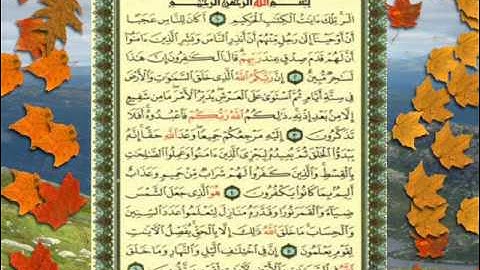 بِسْمِ اللَّهِ الرَّحْمَٰنِ الرَّحِيمِ
الٓر تِلْكَ ءَايَٰتُ ٱلْكِتَٰبِ ٱلْحَكِيمِ ١ أَكَانَ لِلنَّاسِ عَجَبًا
أَنْ أَوْحَيْنَآ إِلَىٰ رَجُلٍ مِّنْهُمْ أَنْ أَنذِرِ ٱلنَّاسَ وَبَشِّرِ ٱلَّذِينَ ءَامَنُوٓا۟
أَنَّ لَهُمْ قَدَمَ صِدْقٍ عِندَ رَبِّهِمْ قَالَ ٱلْكَٰفِرُونَ إِنَّ هَٰذَا
لَسَٰحِرٌ مُّبِينٌ ٢ إِنَّ رَبَّكُمُ ٱللَّهُ ٱلَّذِى خَلَقَ ٱلسَّمَٰوَٰتِ وَٱلْأَرْضَ
فِى سِتَّةِ أَيَّامٍ ثُمَّ ٱسْتَوَىٰ عَلَى ٱلْعَرْشِ يُدَبِّرُ ٱلْأَمْرَ مَا مِن شَفِيعٍ
إِلَّا مِنۢ بَعْدِ إِذْنِهِۦ ذَٰلِكُمُ ٱللَّهُ رَبُّكُمْ فَٱعْبُدُوهُ أَفَلَا
تَذَكَّرُونَ ٣ إِلَيْهِ مَرْجِعُكُمْ جَمِيعًا وَعْدَ ٱللَّهِ حَقًّا إِنَّهُۥ
يَبْدَؤُا۟ ٱلْخَلْقَ ثُمَّ يُعِيدُهُۥ لِيَجْزِىَ ٱلَّذِينَ ءَامَنُوا۟ وَعَمِلُوا۟ ٱلصَّٰلِحَٰتِ
بِٱلْقِسْطِ وَٱلَّذِينَ كَفَرُوا۟ لَهُمْ شَرَابٌ مِّنْ حَمِيمٍ وَعَذَابٌ
أَلِيمٌۢ بِمَا كَانُوا۟ يَكْفُرُونَ ٤ هُوَ ٱلَّذِى جَعَلَ ٱلشَّمْسَ
ضِيَآءً وَٱلْقَمَرَ نُورًا وَقَدَّرَهُۥ مَنَازِلَ لِتَعْلَمُوا۟ عَدَدَ ٱلسِّنِينَ
وَٱلْحِسَابَ مَا خَلَقَ ٱللَّهُ ذَٰلِكَ إِلَّا بِٱلْحَقِّ يُفَصِّلُ ٱلْءَايَٰتِ
لِقَوْمٍ يَعْلَمُونَ ٥ إِنَّ فِى ٱخْتِلَٰفِ ٱلَّيْلِ وَٱلنَّهَارِ وَمَا خَلَقَ